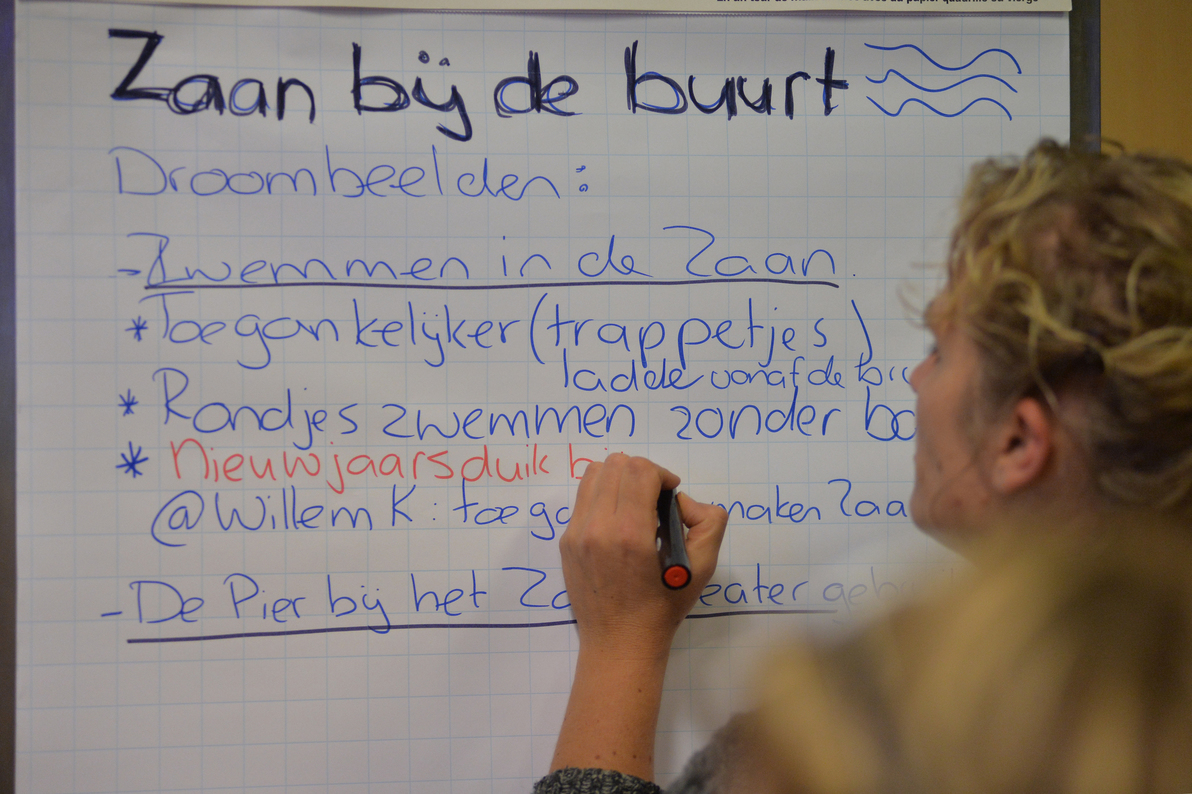 Zaan bij de buurt
Droombeelden:
- Zwemmen in de Zaan.
* Toegankelijker (trappetjes)
ladder vanaf de
* Rondjes zwemmen zonder
* Nieuwjaarsduik
@Willem K: maken
- De Pier bij het